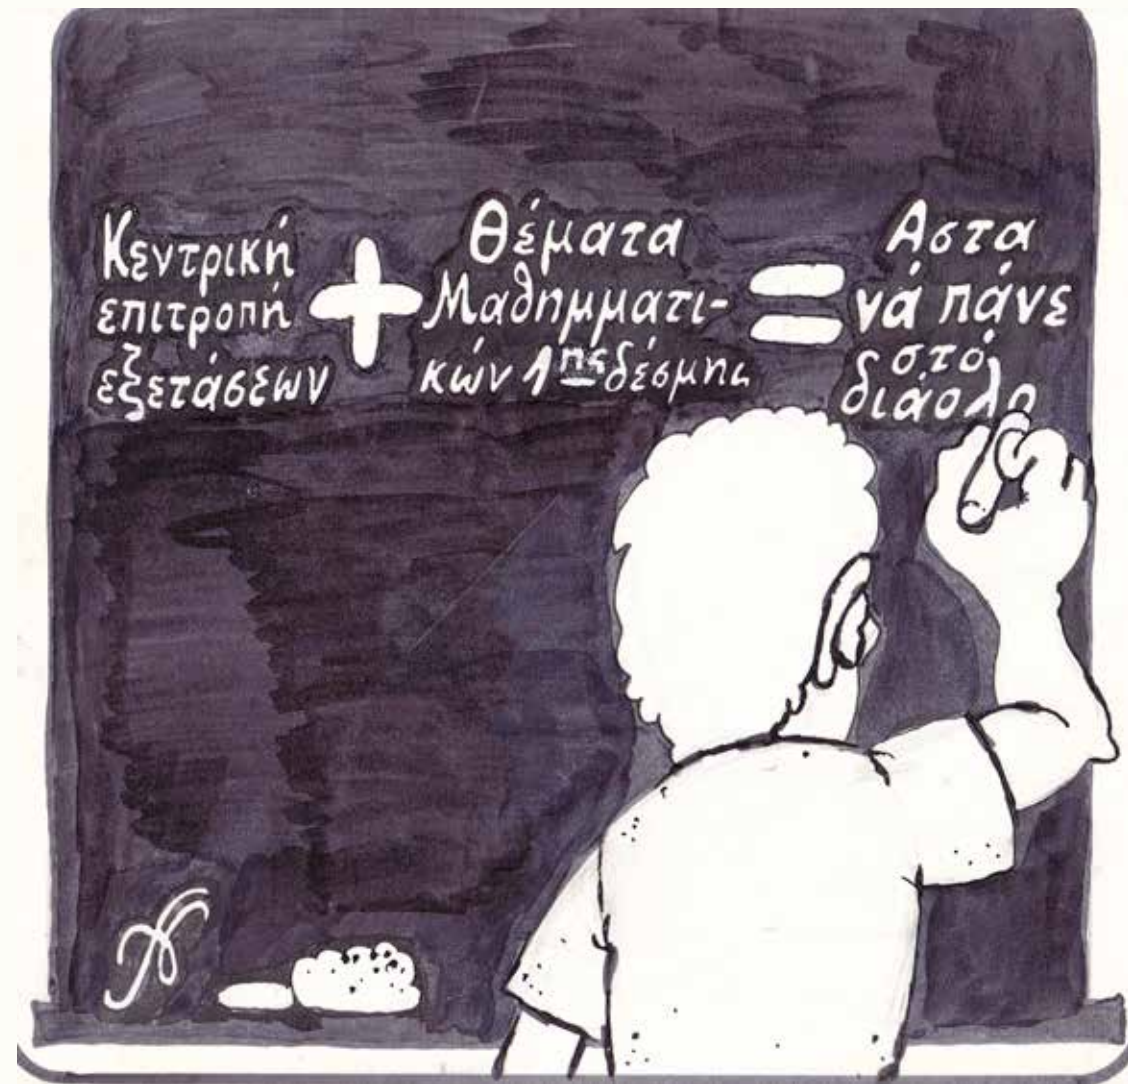 Κεντρική
επιτροπή
εξετάσεων
+
Θέματα
Μαθημματι-
κών 1ης δέσμης
=
Αστα
νά πάνε
στό
διάολο